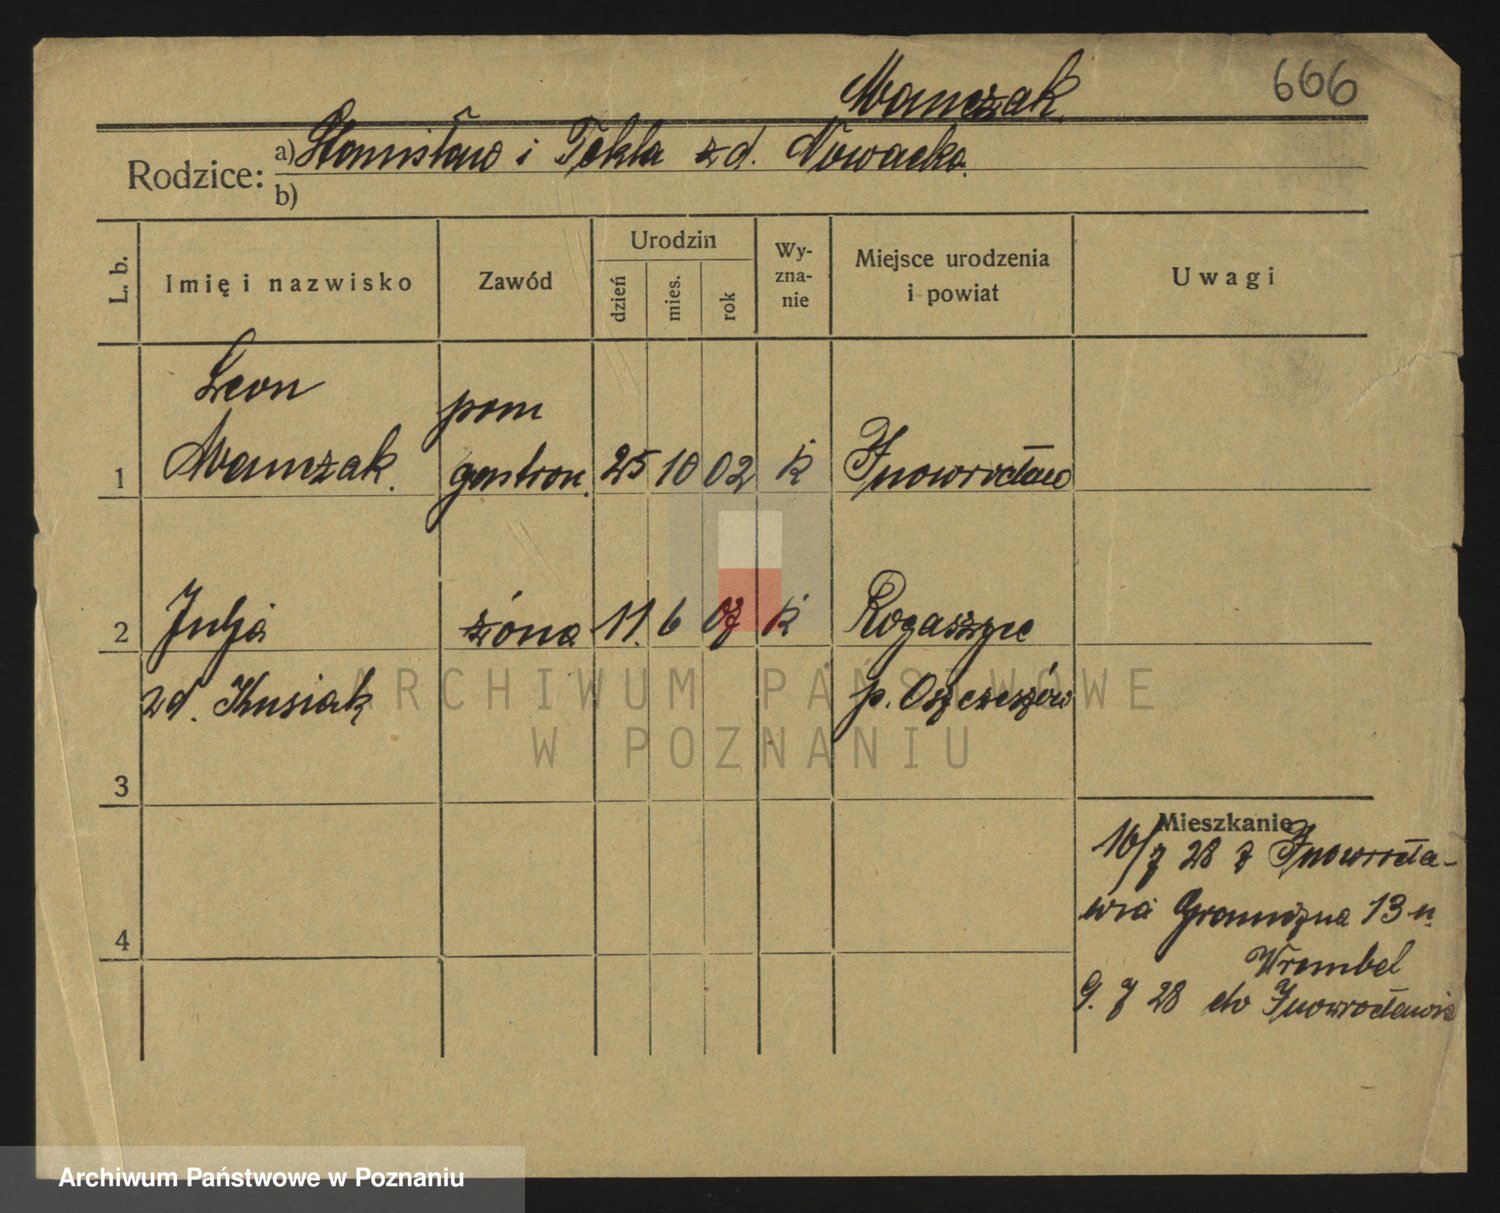 666
Manczak.
Rodzice: a) Stanisław i Tekla zd. Nowacka.
b)
L. b. Imię i nazwisko Zawód Urodzin dzień mies. rok Wy- zna- nie Miejsce urodzenia i powiat Uwagi
Leon pom
1 Manczak. gastron. 25 10 02 k Inowrocław
2 Julja żona 11. 6 07 k Rogaszyce
zd. Kusiak p. Ostrzeszów
ARCHIWUM PAŃSTWOWE
W POZNANIU
3
Mieszkanie
16/7 28 z Inowrocła-
wia Graniczna 13 u
4
Wrembel
9. 7 28 do Inowrocławia
Archiwum Państwowe w Poznaniu